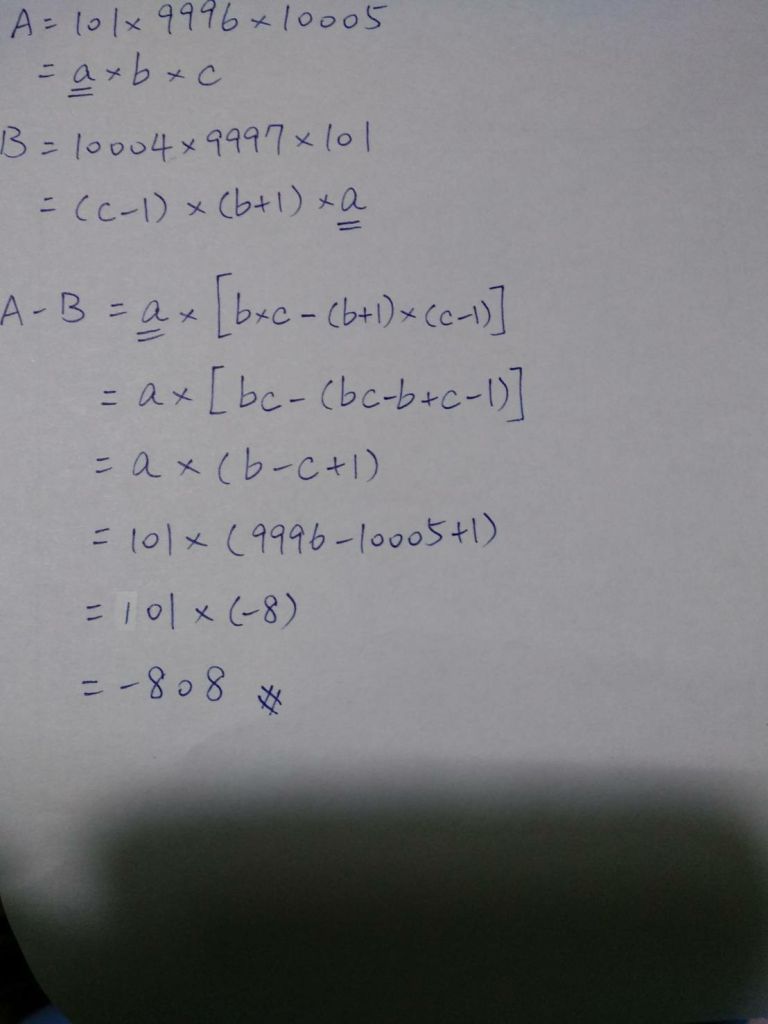 A = 101 × 9996 × 10005
= a × b × c
B = 10004 × 9997 × 101
= (c-1) × (b+1) × a
A - B = a × [b×c - (b+1)×(c-1)]
= a × [bc - (bc-b+c-1)]
= a × (b-c+1)
= 101 × (9996-10005+1)
= 101 × (-8)
= -808 #